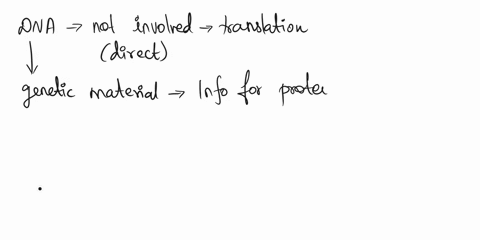 DNA → not involved → translation
(direct)
↓
genetic material → Info for protei